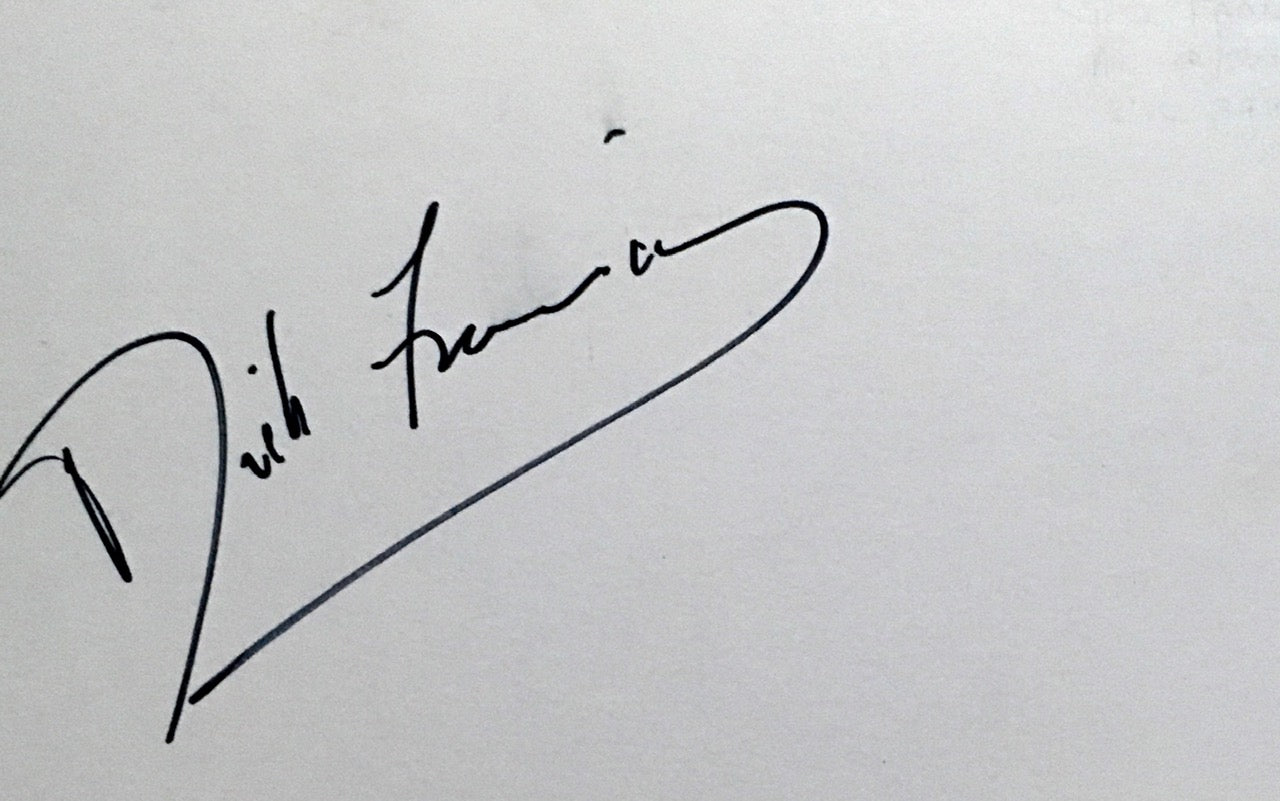 Dick Francis